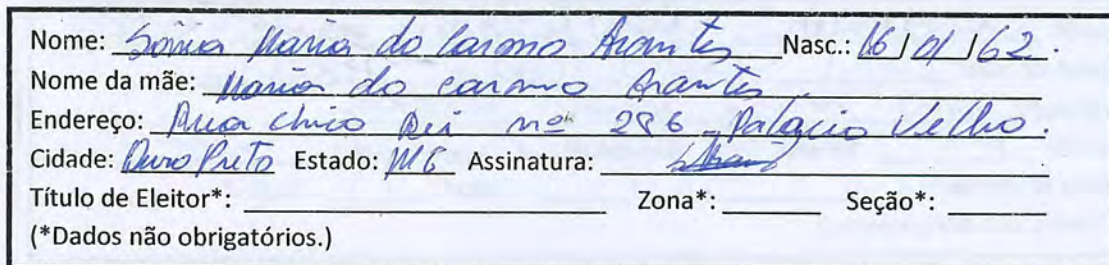 Nome: Sônia Maria do Carmo Arantes Nasc.: 16/01/62.
Nome da mãe: Maria do carmo Arantes.
Endereço: Rua Chico Rei nº 286 Palacio Velho.
Cidade: Ouro Preto Estado: MG Assinatura:
Título de Eleitor*: Zona*: Seção*:
(*Dados não obrigatórios.)